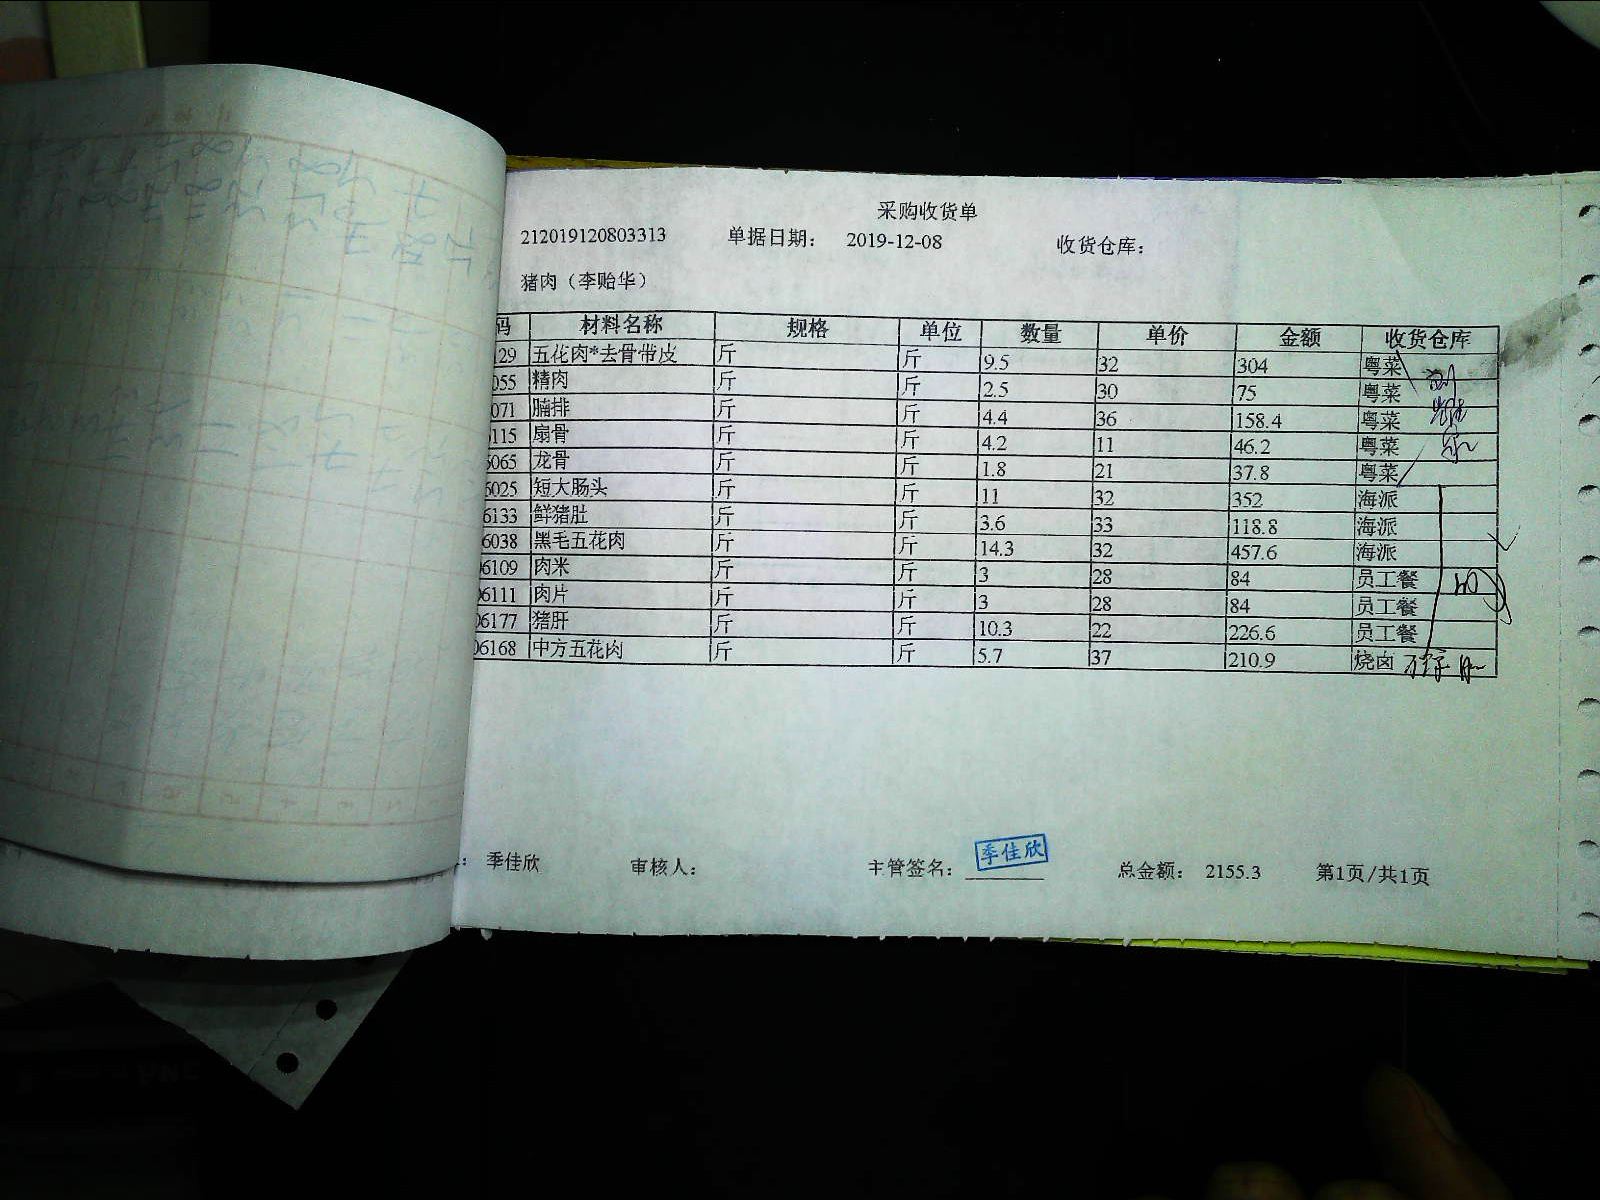 采购收货单
212019120803313 单据日期： 2019-12-08 收货仓库：
猪肉（李贻华）
码 材料名称 规格 单位 数量 单价 金额 收货仓库
129 五花肉*去骨带皮 斤 斤 9.5 32 304 粤菜
055 精肉 斤 斤 2.5 30 75 粤菜
071 腩排 斤 斤 4.4 36 158.4 粤菜
115 扇骨 斤 斤 4.2 11 46.2 粤菜
6065 龙骨 斤 斤 1.8 21 37.8 粤菜
6025 短大肠头 斤 斤 11 32 352 海派
6133 鲜猪肚 斤 斤 3.6 33 118.8 海派
6038 黑毛五花肉 斤 斤 14.3 32 457.6 海派
06109 肉米 斤 斤 3 28 84 员工餐
06111 肉片 斤 斤 3 28 84 员工餐
06177 猪肝 斤 斤 10.3 22 226.6 员工餐
06168 中方五花肉 斤 斤 5.7 37 210.9 烧卤
季佳欣
： 季佳欣 审核人： 主管签名： 总金额： 2155.3 第1页/共1页